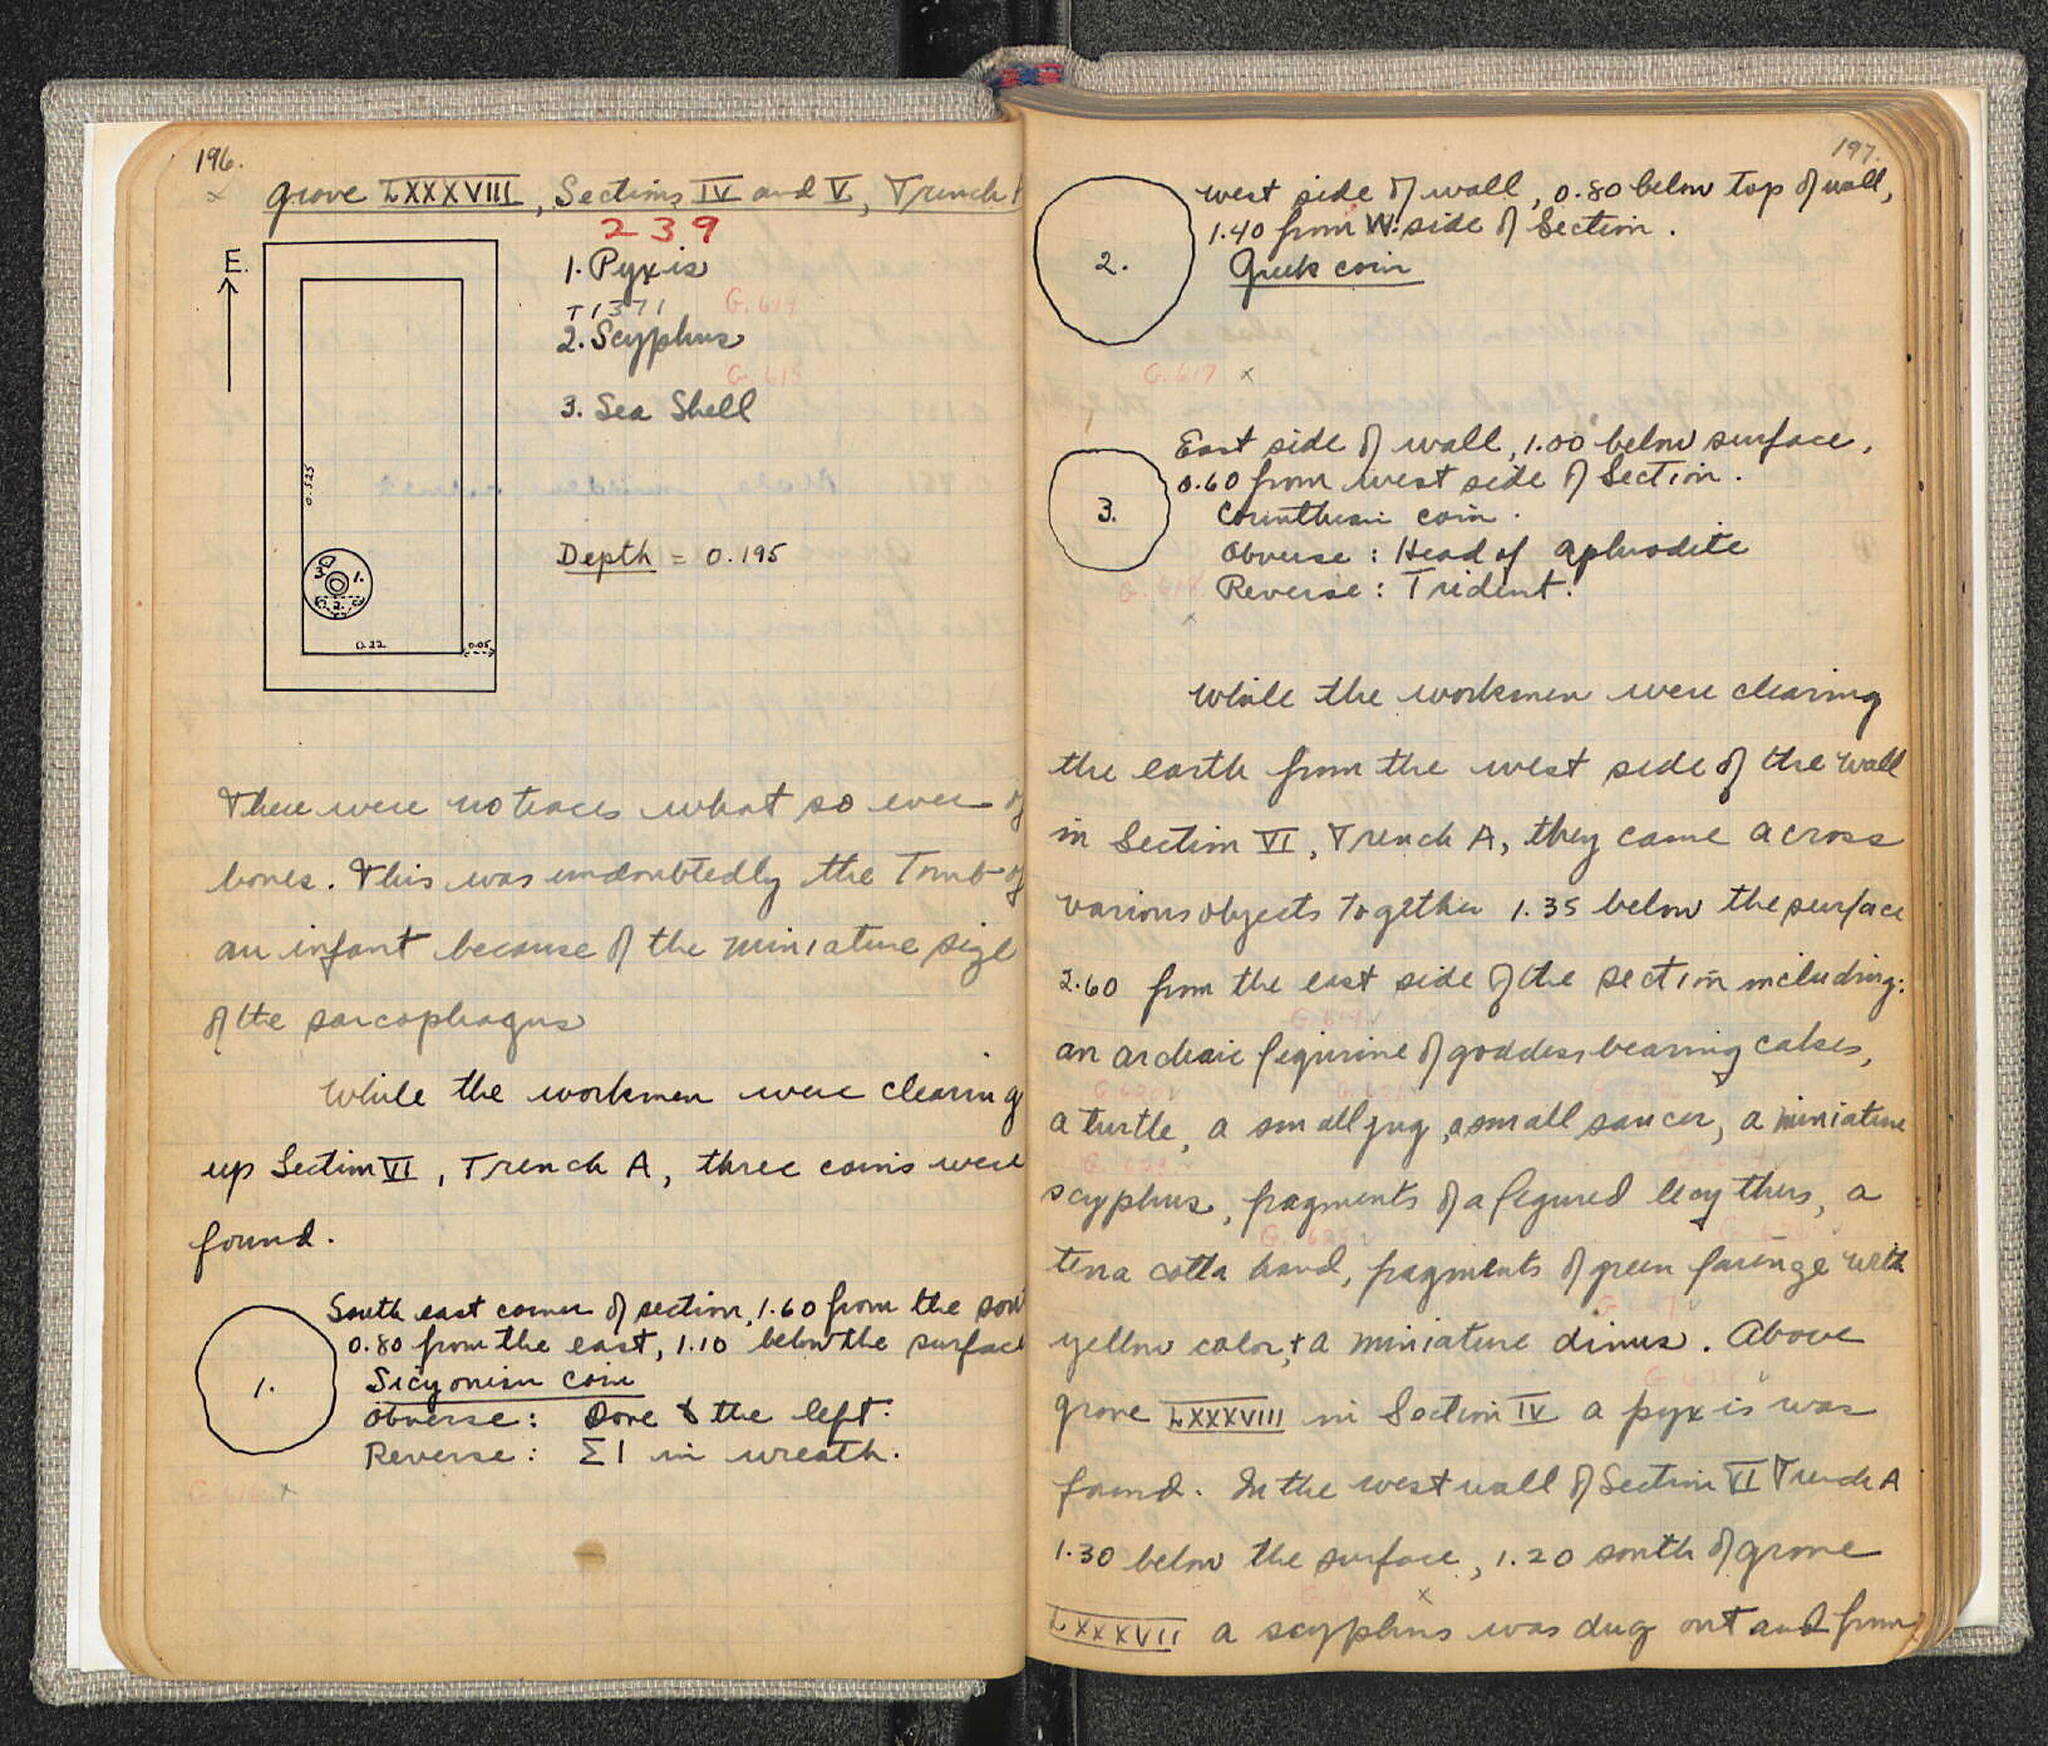 196.
Grave LXXXVIII, Sections IV and V, Trench
239
E.
1. Pyxis
T1371
G. 614
2. Scyphus
G. 615
3. Sea Shell
0.525
Depth = 0.195
3. 1.
2.
0.22 0.05
There were no traces what so ever of
bones. This was undoubtedly the Tomb of
an infant because of the miniature size
of the sarcophagus
While the workmen were clearing
up Section VI, Trench A, three coins were
found.
South east corner of section, 1.60 from the
0.80 from the east, 1.10 below the surface
1.
Sicyonian coin
Obverse: Dove to the left.
Reverse: ΣΙ in wreath.
G. 616 x
197.
west side of wall, 0.80 below top of wall,
1.40 from W. side of Section.
2.
Greek coin
G. 617 x
East side of wall, 1.00 below surface,
0.60 from west side of Section.
3.
Corinthian coin.
Obverse: Head of Aphrodite
G. 618 Reverse: Trident.
x
While the workmen were clearing
the earth from the west side of the wall
in Section VI, Trench A, they came across
various objects together 1.35 below the surface
2.60 from the east side of the section including:
G. 619
an archaic figurine of goddess bearing cakes,
G. 620 G. 621
a turtle, a small jug, a small saucer, a miniature
scyphus, fragments of a figured lecythus, a
G. 625
terra cotta hand, fragments of green farenge with
yellow color, + a miniature dinus. Above
grave LXXXVIII in Section IV a pyxis was
found. In the west wall of Section VI Trench A
1.30 below the surface, 1.20 south of grave
x
LXXXVII a scyphus was dug out and from